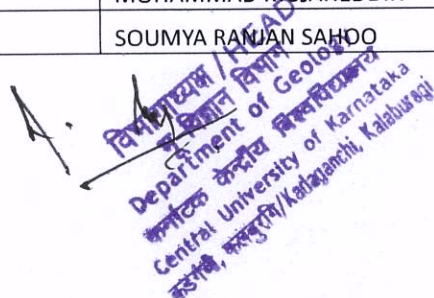 MUHAMMAD
SOUMYA RANJAN SAHOO
विभागाध्यक्ष / HEAD
विज्ञान विभाग
Department of Geology
कर्नाटक केन्द्रीय विश्वविद्यालय
Central University of Karnataka
कडगंची, कलबुरगि/Kadaganchi, Kalaburagi